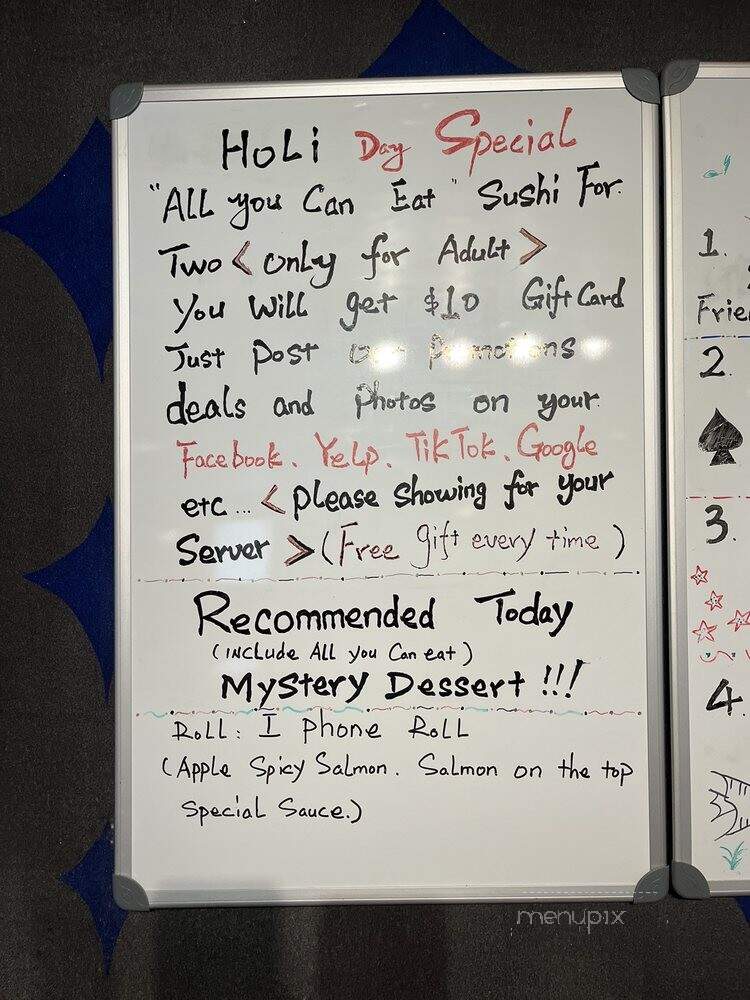 HoLi Day Special
"All you Can Eat" Sushi For
Two < only for Adult >
You Will get $10 Gift Card
Just Post our Promotions
deals and Photos on your
Facebook. Yelp. TikTok. Google
etc... < please showing for your
Server > (Free gift every time )
Recommended Today
(include All you Can eat)
Mystery Dessert !!!
Roll: I phone Roll
(Apple Spicy Salmon. Salmon on the top
Special Sauce.)
1.
Frie
2.
3.
4.
menupix